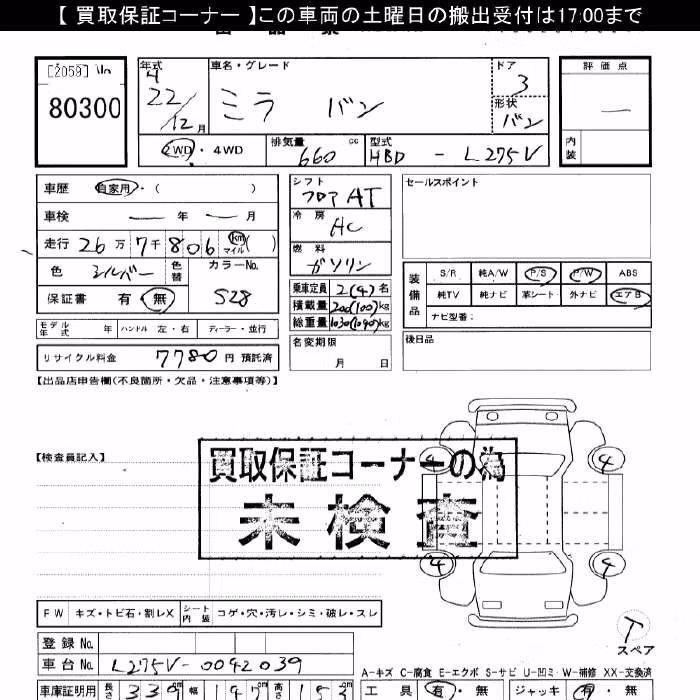 【 買取保証コーナー 】この車両の土曜日の搬出受付は17:00まで
[2059]
80300
年式 車名・グレード ドア 評価点
4
22/12月 ミラ バン 3 —
形状 バン
2WD・4WD 排気量 660 cc 型式 HBD - L275V 内装
車歴 自家用・( ) シフト フロア AT セールスポイント
車検 — 年 — 月 冷房 AC
走行 26万7千806 km マイル( ) 燃料 ガソリン
色 シルバー 色替 カラーNo. S28
保証書 有・無
乗車定員 2(4)名
積載量 200(100)kg
総重量 1030(1090)kg
装備品 S/R 純A/W P/S P/W ABS
純TV 純ナビ 革シート 外ナビ エアB
ナビ型番:
モデル年式 年 ハンドル 左・右 ディーラー・並行 名変期限 月 日 後日品
リサイクル料金 7780 円 預託済
【出品店申告欄(不良箇所・欠品・注意事項等)】
【検査員記入】
買取保証コーナーの為
未検査
4 4
4 4
FW キズ・トビ石・割レX シート内装 コゲ・穴・汚レ・シミ・破レ・スレ
T
スペア
登録 No.
車台 No. L275V-0042039
A-キズ C-腐食 E-エクボ S-サビ U-凹ミ W-補修 XX-交換済
車庫証明用 長さ 339cm 幅 147cm 高さ 153cm 工具 有・無 ジャッキ 有・無